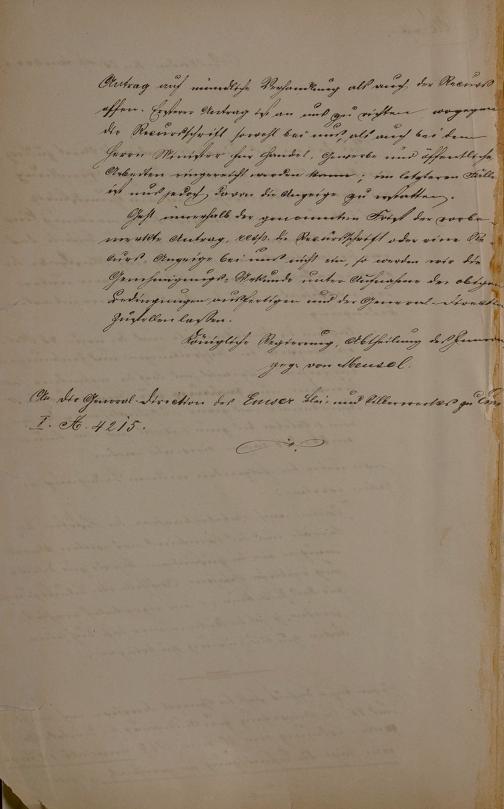 Antrag auf mündliche Verhandlung als auch der Recurs
offen. Ersterer Antrag ist an uns zu richten, wogegen
die Recursschrift sowohl bei uns, als auch bei dem
Herrn Minister für Handel, Gewerbe und öffentliche
Arbeiten eingereicht werden kann; im letzteren Falle
ist uns jedoch davon die Anzeige zu erstatten.
Geht innerhalb der genannten Frist der vorbe-
merkte Antrag, resp. die Recursschrift oder eine Re-
curs-Anzeige bei uns nicht ein, so werden wir die
Genehmigungs-Urkunde unter Aufnahme der obigen
Bedingungen ausfertigen und der General-Direction
zustellen lassen.
Königliche Regierung, Abtheilung des Innern
gez. von Meusel.
An die General-Direction des Emser Blei- und Silberwerkes zu Ems
I. A. 4215.